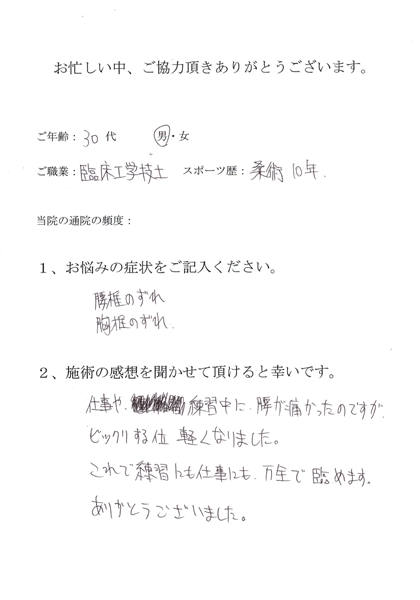 お忙しい中、ご協力頂きありがとうございます。
ご年齢：30代　男・女
ご職業：臨床工学技士　スポーツ歴：柔術10年.
当院の通院の頻度：
１、お悩みの症状をご記入ください。
腰椎のずれ
胸椎のずれ.
２、施術の感想を聞かせて頂けると幸いです。
仕事や、練習中に、腰が痛かったのですが、
ビックリする位 軽くなりました。
これで練習にも仕事にも、万全で臨めます。
ありがとうございました。